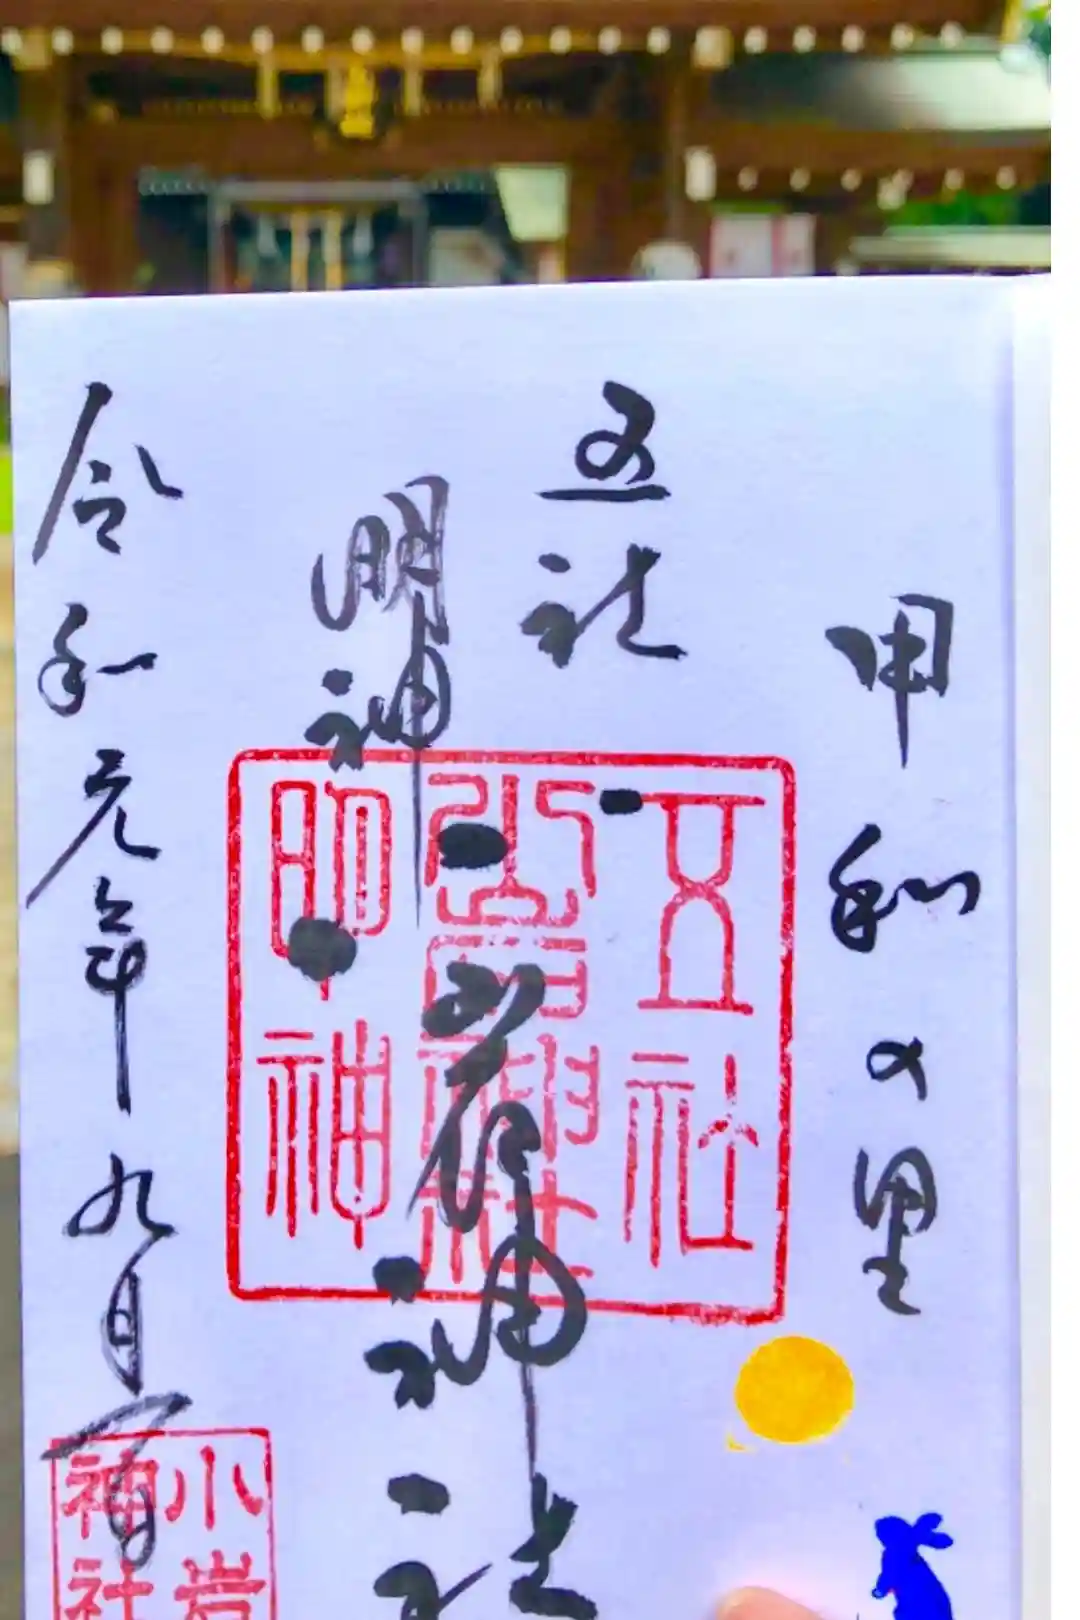 甲和の里
五社
明神
小岩神社
令和元年九月
五社
小岩神社
明神
小岩
神社